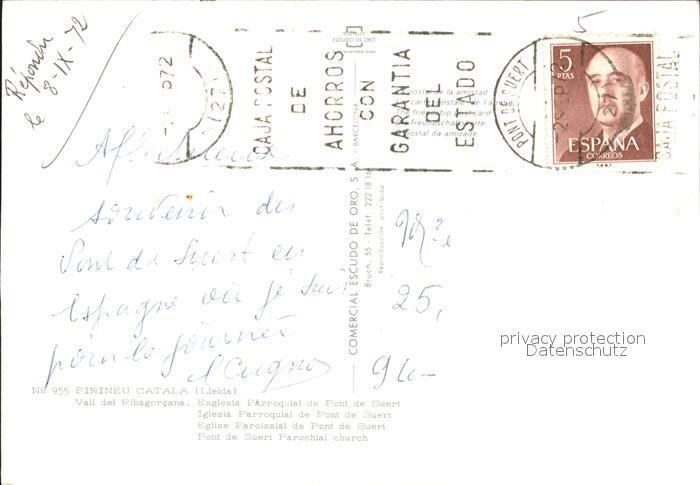 Réponse
le 8-IX-72
5
P72
(27)
CAJA POSTAL
DE
AHORROS
CON
GARANTIA
DEL
ESTADO
PONT DE SUERT
CAJA POSTAL
5
PTAS
ESPAÑA
CORREOS
ESCUDO DE ORO
postal de la amistad
The friendship post card
postal da amizade
souvenir du
Pont de Suert en
Espagne où je suis
pour la journée
Mme
25,
94-
COMERCIAL ESCUDO DE ORO, S. A. - BARCELONA
Bruch, 55 - Teléf. 222 18 16
Reproducción prohibida
privacy protection
Datenschutz
Nº 955 PIRINEU CATALA (Lleida)
Vall del Ribagorçana. Esglesia Parroquial de Pont de Suert
Iglesia Parroquial de Pont de Suert
Eglise Paroissial de Pont de Suert
Pont de Suert Parochial church